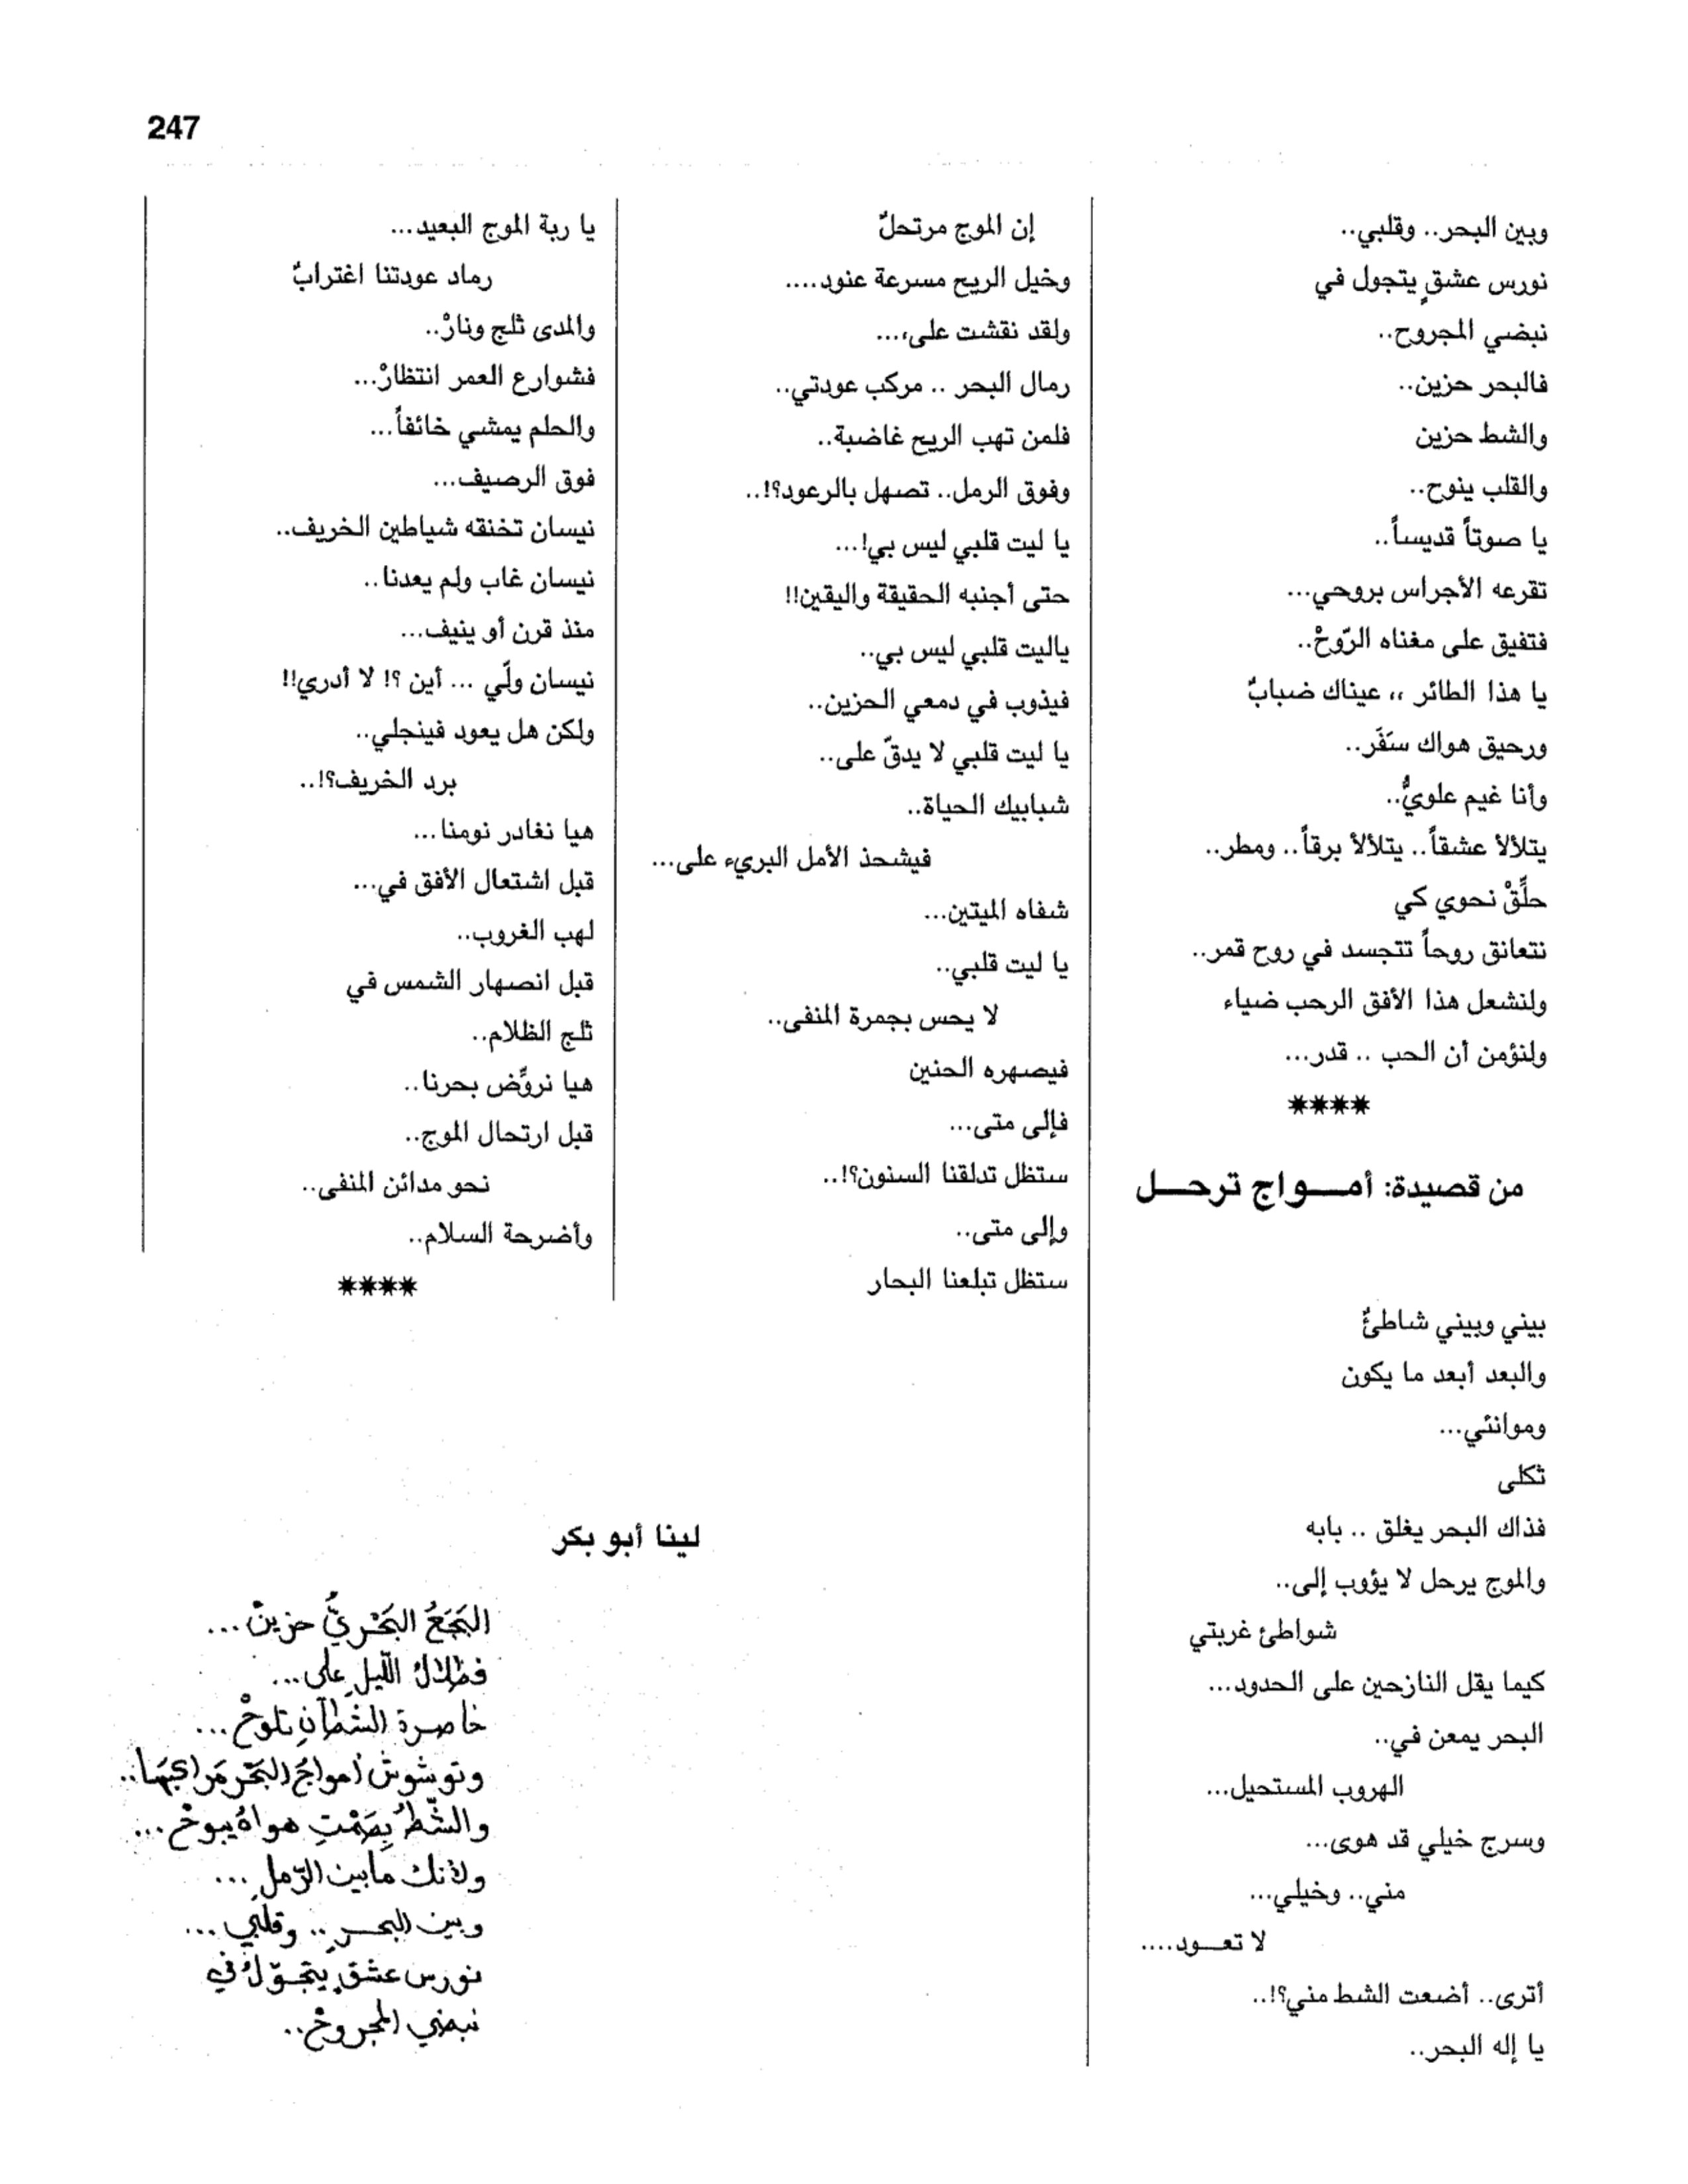 247
وبين البحر.. وقلبي..
نورس عشقٍ يتجول في
نبضي المجروح..
فالبحر حزين..
والشط حزين
والقلب ينوح..
يا صوتاً قديساً..
تقرعه الأجراس بروحي...
فتفيق على مغناه الرّوحْ..
يا هذا الطائر ،، عيناك ضبابٌ
ورحيق هواك سَفَر..
وأنا غيم علويٌّ..
يتلألأ عشقاً.. يتلألأ برقاً.. ومطر..
حلِّقْ نحوي كي
نتعانق روحاً تتجسد في روح قمر..
ولنشعل هذا الأفق الرحب ضياء
ولنؤمن أن الحب .. قدر...
****
من قصيدة: أمـــواج ترحــل
بيني وبيني شاطئٌ
والبعد أبعد ما يكون
وموانئي...
ثكلى
فذاك البحر يغلق .. بابه
والموج يرحل لا يؤوب إلى..
شواطئ غربتي
كيما يقل النازحين على الحدود...
البحر يمعن في..
الهروب المستحيل...
وسرج خيلي قد هوى...
مني.. وخيلي...
لا تعــود....
أترى.. أضعت الشط مني؟!..
يا إله البحر..
إن الموج مرتحلٌ
وخيل الريح مسرعة عنود....
ولقد نقشت على،...
رمال البحر .. مركب عودتي..
فلمن تهب الريح غاضبة..
وفوق الرمل.. تصهل بالرعود؟!..
يا ليت قلبي ليس بي!...
حتى أجنبه الحقيقة واليقين!!
ياليت قلبي ليس بي..
فيذوب في دمعي الحزين..
يا ليت قلبي لا يدقّ على..
شبابيك الحياة..
فيشحذ الأمل البريء على...
شفاه الميتين...
يا ليت قلبي..
لا يحس بجمرة المنفى..
فيصهره الحنين
فإلى متى...
ستظل تدلقنا السنون؟!..
وإلى متى..
ستظل تبلعنا البحار
يا ربة الموج البعيد...
رماد عودتنا اغترابٌ
والمدى ثلج ونارْ..
فشوارع العمر انتظارْ...
والحلم يمشي خائفاً...
فوق الرصيف...
نيسان تخنقه شياطين الخريف..
نيسان غاب ولم يعدنا..
منذ قرن أو ينيف...
نيسان ولّي ... أين ؟! لا أدري!!
ولكن هل يعود فينجلي..
برد الخريف؟!..
هيا نغادر نومنا...
قبل اشتعال الأفق في...
لهب الغروب..
قبل انصهار الشمس في
ثلج الظلام..
هيا نروِّض بحرنا..
قبل ارتحال الموج..
نحو مدائن المنفى..
وأضرحة السلام..
****
لينا أبو بكر
البَجَعُ البَحْريُّ حزينٌ...
فظلالُ اللّيلِ على...
خاصرة الشطآنِ تلوحْ...
وتوشوش أمواجُ البَحْرِ مَراكِبَها..
والشّطُ بِصَمْتِ هواهُ يبوحْ...
ولأنك مابين الرّمل...
وبين البحــرِ.. وقلبي...
نورس عشقٍ يتجوّلُ في
نبضي المجروحْ..